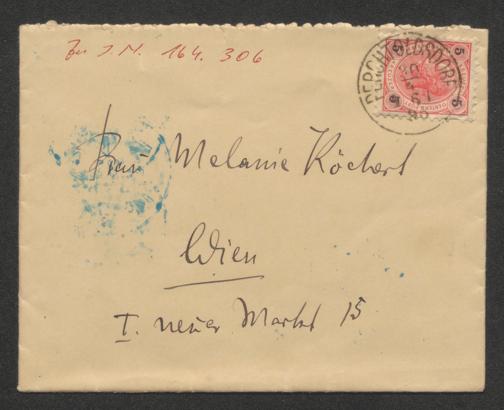 Zu I.N. 164.306
PERCHTOLDSDORF
5
5
5
Frau Melanie Köchert
Wien
I. neuer Markt 15